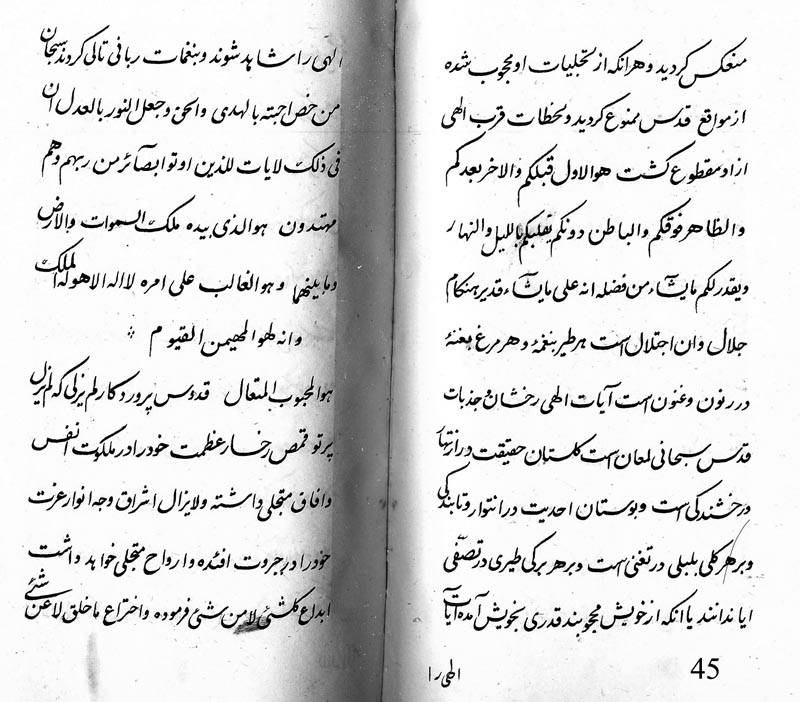 منعکس کردید و هر انکه از تجلیات او محجوب شده
از مواقع قدس ممنوع کردید و لحظات قرب الهی
از او مقطوع کشت هو الاول قبلکم والاخر بعدکم
والظاهر فوقکم والباطن دونکم یقلبکم باللیل والنهار
ویقدر لکم مایشآء من فضله انه علی مایشآء قدیر هنکام
جلال وان اجتلال است هر طیر بنغمهٔ و هر مرغ بغنهٔ
در رنون و غنون است آیات الهی رخشان و جذبات
قدس سبحانی لمعان است کلستان حقیقت در ازتهار
و رخشندکی است و بوستان احدیت در انتوار و تابندکی
و بر هر کلی بلبلی در تغنی است و بر هر برکی طیری در تصفی
ایا ندانند یا انکه از خویش محجوبند قدری بخویش آمده آیات
الهی را
45
الهی را مشاهد شوند و بنغمات ربانی تالی کردند سبحان
من خص احبته بالهدی والحق وجعل النور بالعدل ان
فی ذلک لایات للذین اوتوا بصآئر من ربهم وهم
مهتدون هو الذی بیده ملک السموات والارض
وما بینهما وهو الغالب علی امره لا اله الا هو له الملک
وانه لهو المهیمن القیوم
هو المحبوب المتعال قدوس پروردکار لم یزلی که لم یزل
پرتو قمص رخسار عظمت خود را در ملکوت انفس
وافاق متجلی داشته ولایزال اشراق وجه انوار عزت
خود را در جبروت افئده و ارواح متجلی خواهد داشت
ابداع کلشئ لا من شئ فرموده واختراع ما خلق لا عن شئ